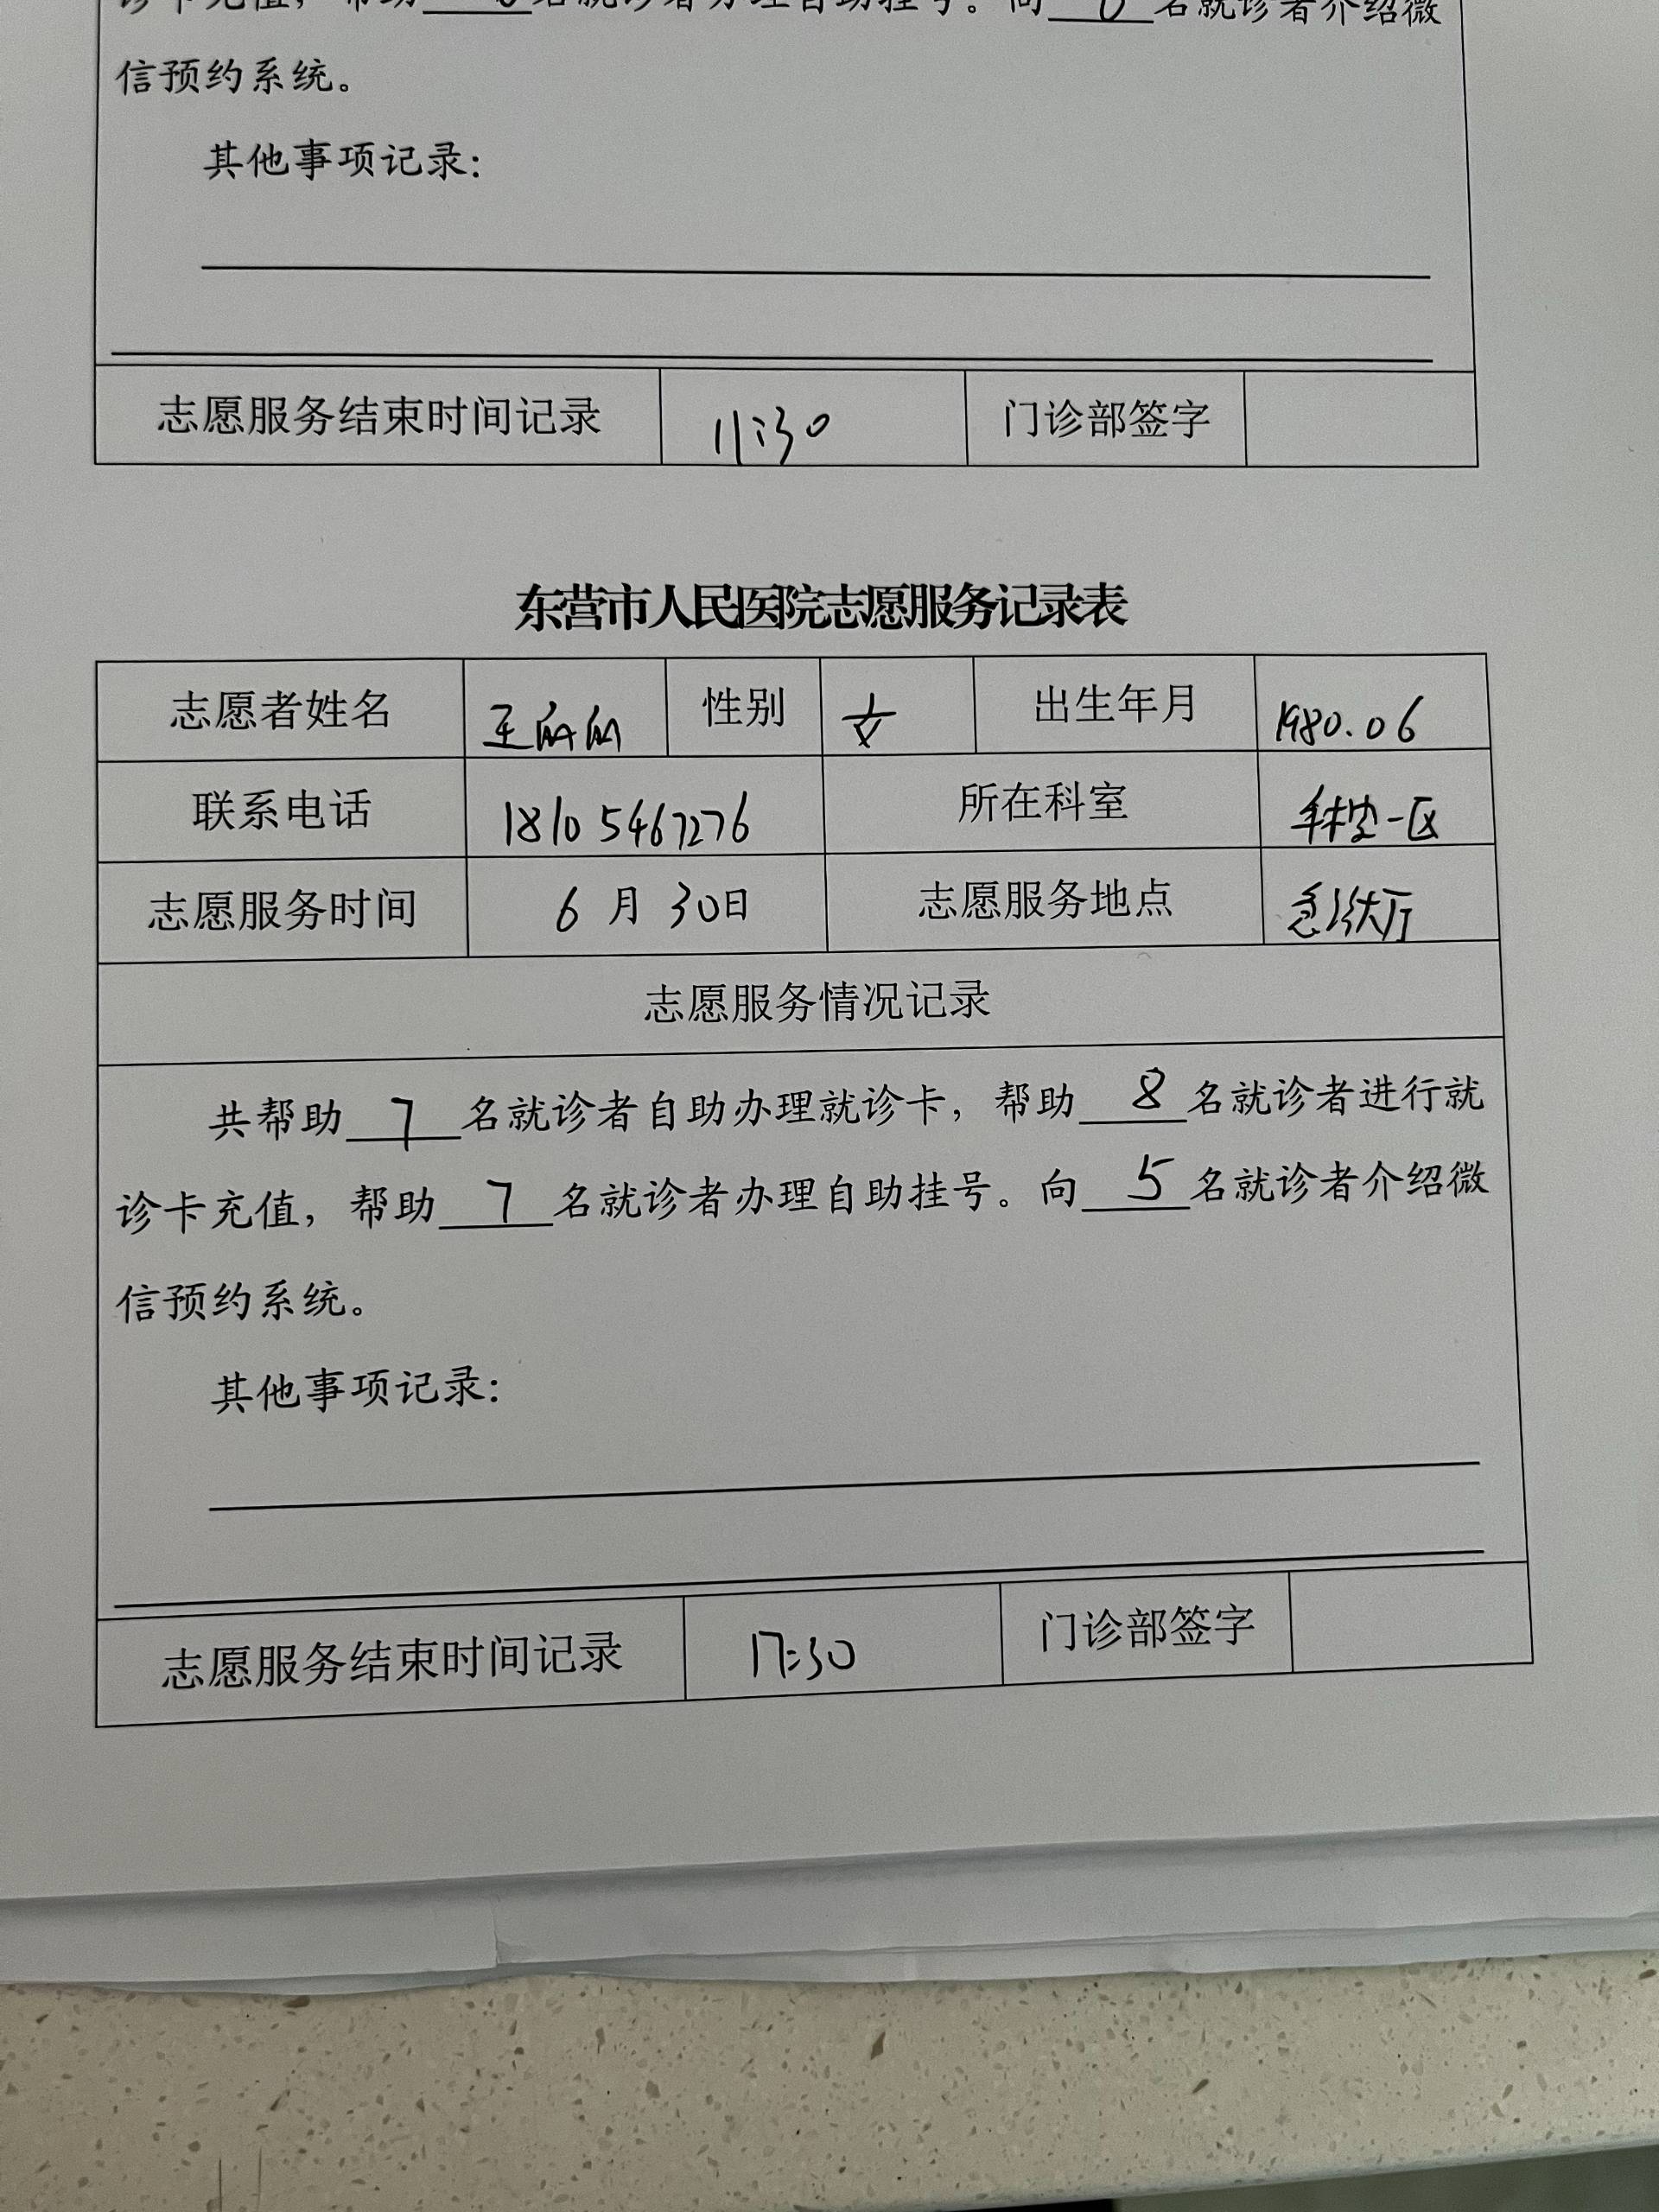 诊卡充值，帮助 6 名就诊者办理自助挂号。向 6 名就诊者介绍微
信预约系统。
其他事项记录：
志愿服务结束时间记录 11:30 门诊部签字
东营市人民医院志愿服务记录表
志愿者姓名 王 性别 女 出生年月 1980.06
联系电话 18105467276 所在科室 手术室一区
志愿服务时间 6 月 30日 志愿服务地点 急诊大厅
志愿服务情况记录
共帮助 7 名就诊者自助办理就诊卡，帮助 8 名就诊者进行就
诊卡充值，帮助 7 名就诊者办理自助挂号。向 5 名就诊者介绍微
信预约系统。
其他事项记录：
志愿服务结束时间记录 17:30 门诊部签字